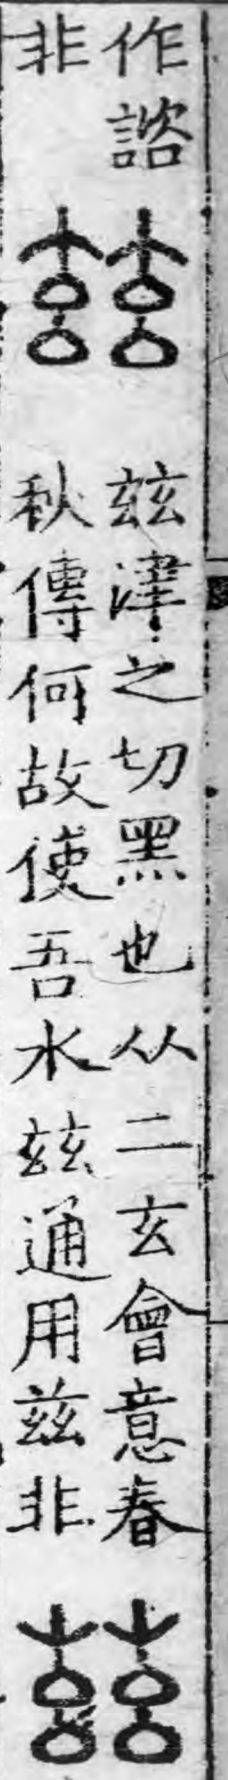 作諮
非
玆津之切黑也从二玄會意春
秋傳何故使吾水玆通用茲非